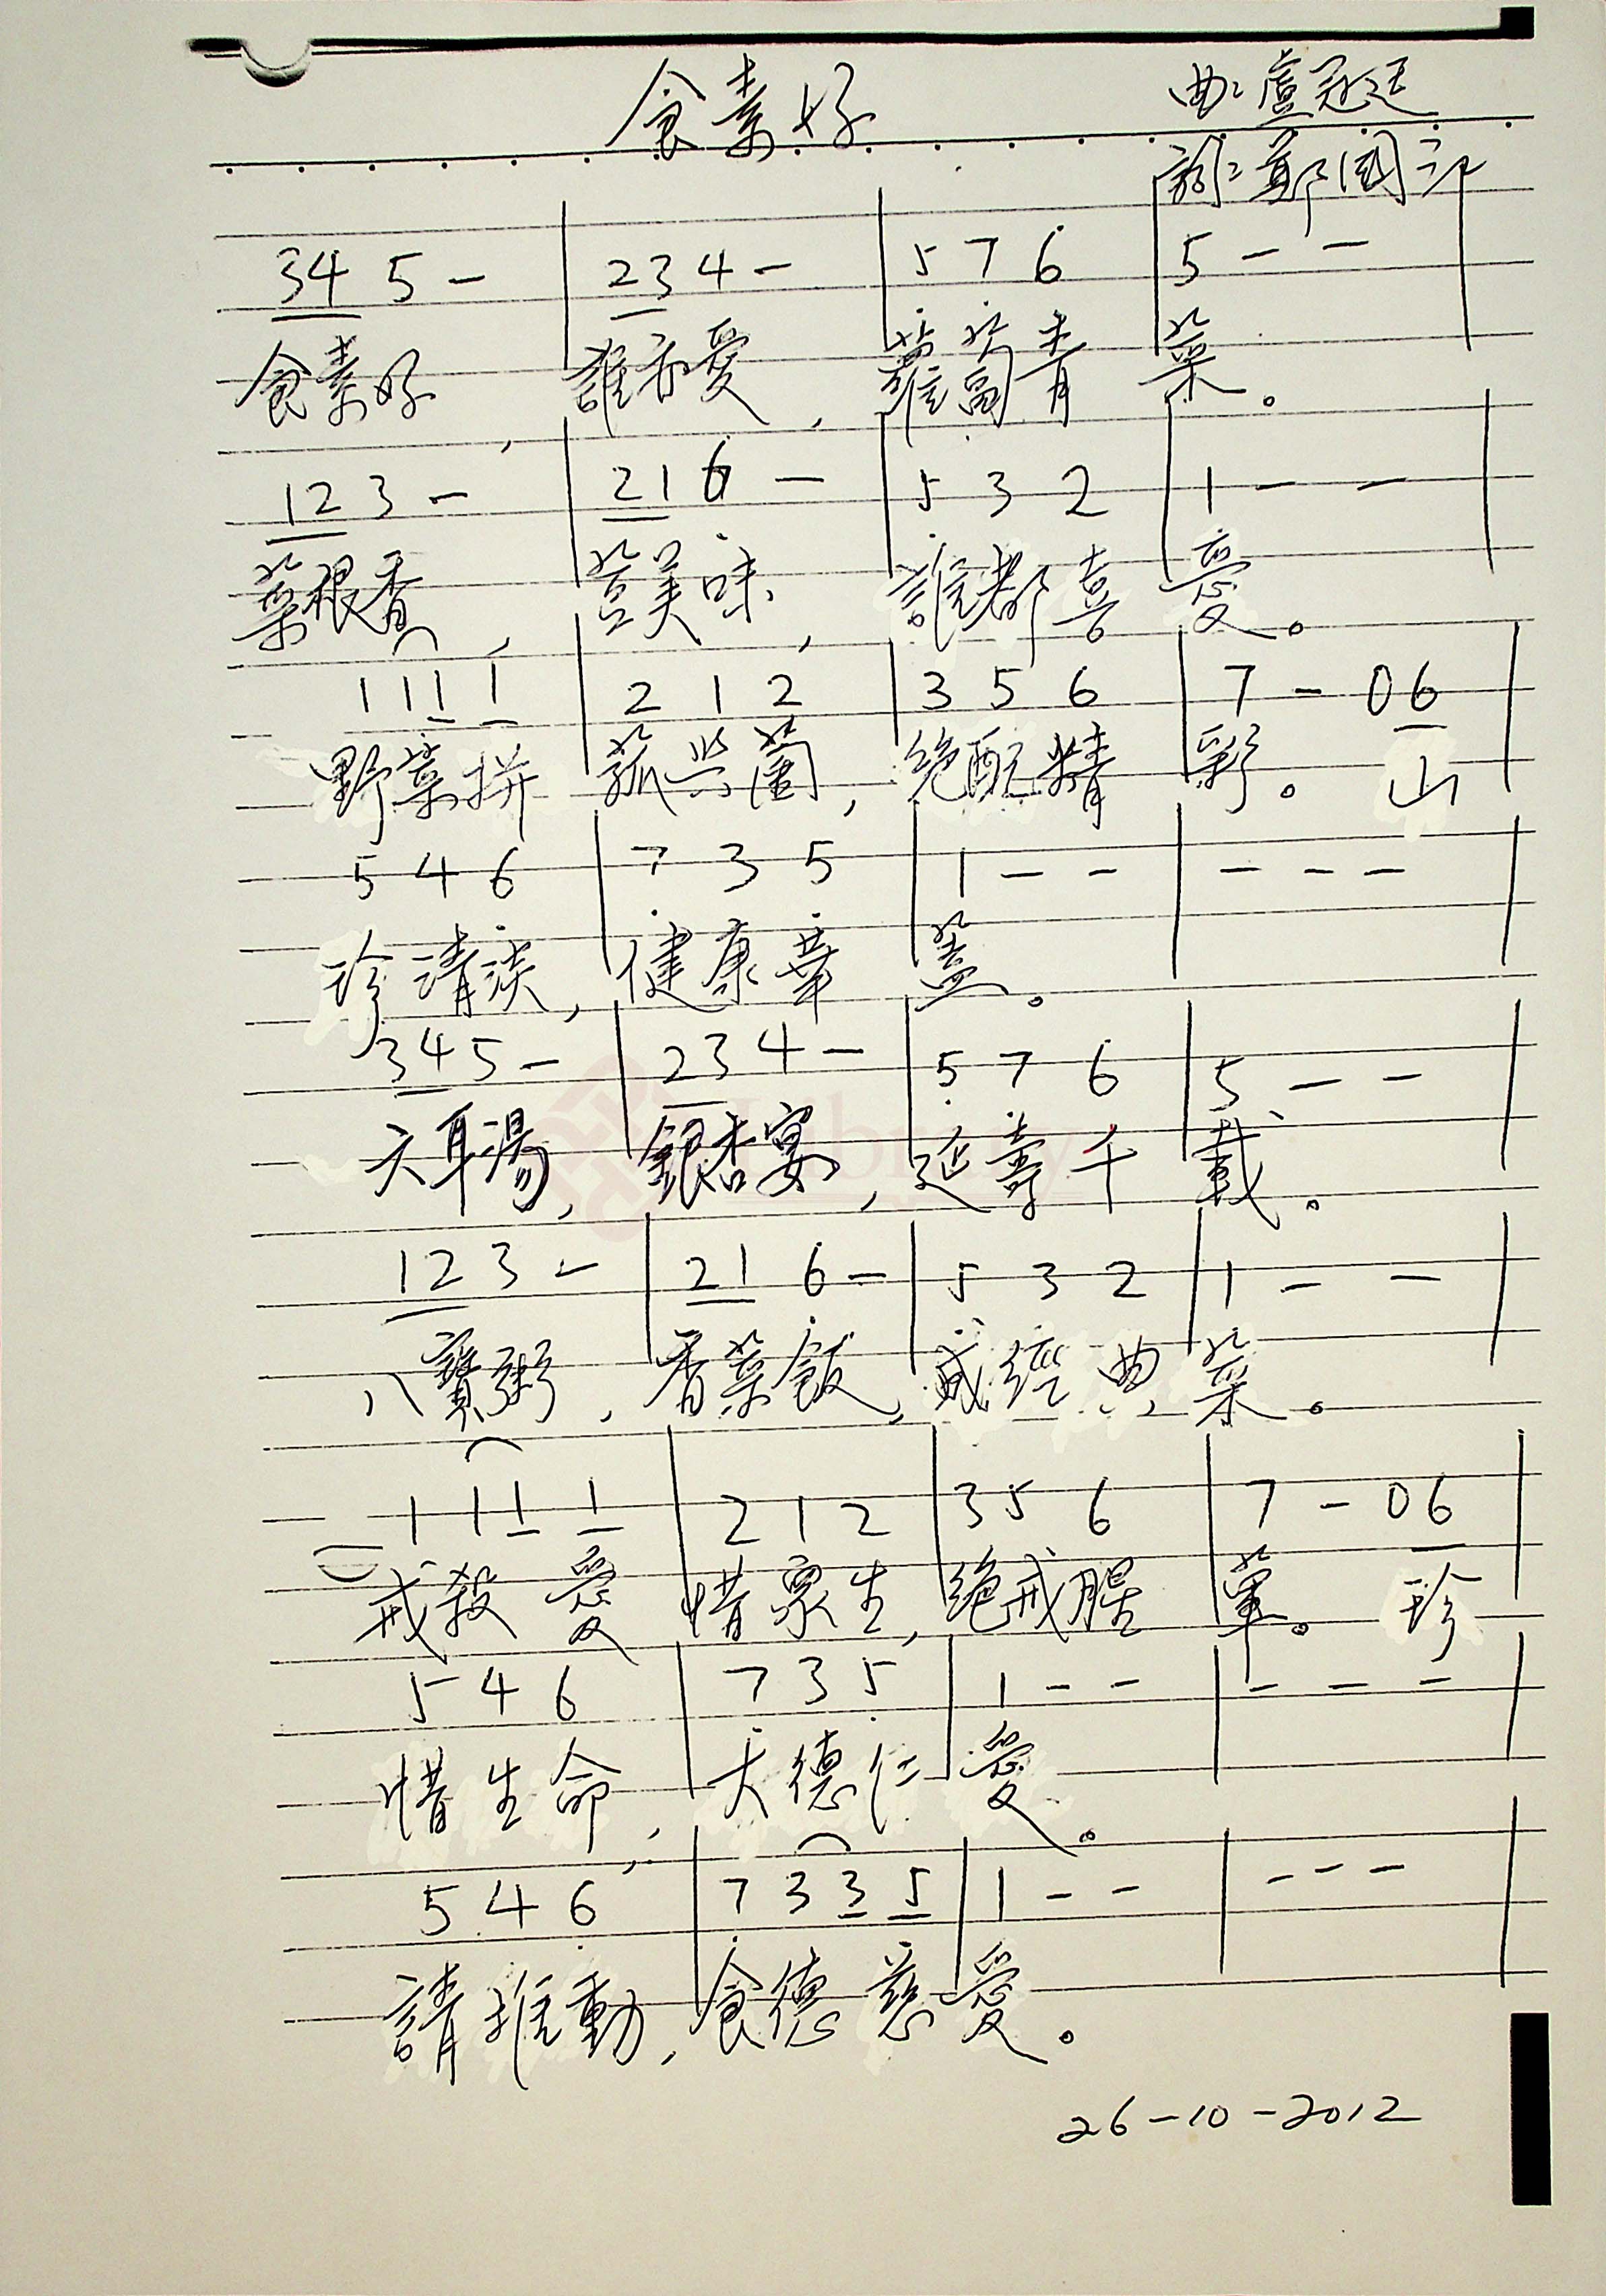 食素好 曲:盧冠廷
詞:鄭國江
3 4 5 - | 2 3 4 - | 5 7 6 | 5 - - |
食素好,誰不愛,蘿蔔青菜。
1 2 3 - | 2 1 6 - | 5 3 2 | 1 - - |
菜根香,荳美味,誰都喜愛。
1 1 1 1 | 2 1 2 | 3 5 6 | 7 - 0 6 |
野菜拼菰與菌,絕配精彩。山
5 4 6 | 7 3 5 | 1 - - | - - - |
珍清淡,健康華蓋。
3 4 5 - | 2 3 4 - | 5 7 6 | 5 - - |
木耳湯,銀杏宴,延壽千載。
1 2 3 - | 2 1 6 - | 5 3 2 | 1 - - |
八寶粥,香菜飯,成經典菜。
1 1 1 1 | 2 1 2 | 3 5 6 | 7 - 0 6 |
戒殺愛惜眾生,絕戒腥葷。珍
5 4 6 | 7 3 5 | 1 - - | - - - |
惜生命,大德仁愛。
5 4 6 | 7 3 3 5 | 1 - - | - - - |
請推動,食德慈愛。
26-10-2012